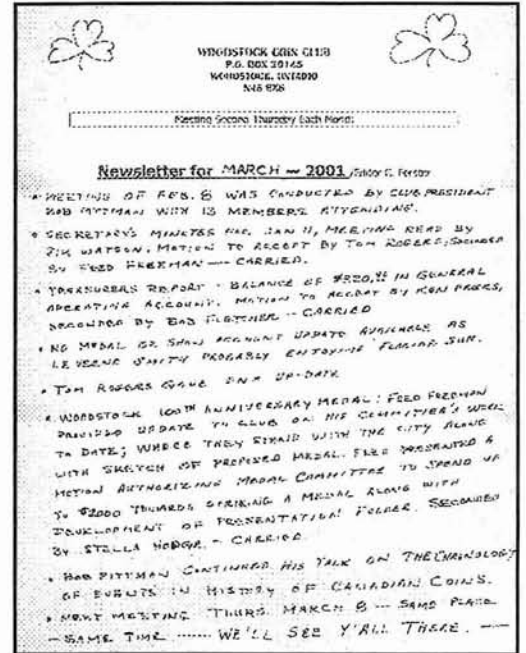 WOODSTOCK COIN CLUB
P.O. BOX 20145
WOODSTOCK, ONTARIO
N4S 8X8
Meeting Second Thursday Each Month
Newsletter for MARCH ~ 2001 /Editor
• MEETING OF FEB. 8 WAS CONDUCTED BY CLUB PRESIDENT
BOB PITTMAN WITH 13 MEMBERS ATTENDING.
• SECRETARY'S MINUTES JAN 11, MEETING READ BY
JIM WATSON. MOTION TO ACCEPT BY TOM ROGERS, SECONDED
BY FRED FREEMAN — CARRIED.
• TREASURERS REPORT - BALANCE OF IN GENERAL
OPERATING ACCOUNT. MOTION TO ACCEPT BY KEN
SECONDED BY BOB FLETCHER - CARRIED
• NO MEDAL OR SHOW ACCOUNT UPDATE AVAILABLE AS
LEVERNE SMITH PROBABLY ENJOYING SUN.
• TOM ROGERS GAVE UP-DATE
• WOODSTOCK 100TH ANNIVERSARY MEDAL: FRED FREEMAN
PROVIDED UPDATE TO CLUB ON HIS COMMITTEE'S WORK
TO DATE; WHERE THEY STAND WITH THE CITY ALONG
WITH SKETCH OF PROPOSED MEDAL. FRED PRESENTED A
MOTION AUTHORIZING MEDAL COMMITTEE TO SPEND UP
TO $2000 TOWARDS STRIKING A MEDAL ALONG WITH
DEVELOPMENT OF PRESENTATION FOLDER. SECONDED
BY STELLA HODGE. - CARRIED
• BOB PITTMAN CONTINUED HIS TALK ON THE CHRONOLOGY
OF EVENTS IN HISTORY OF CANADIAN COINS.
• NEXT MEETING THURS MARCH 8 --- SAME PLACE
- SAME TIME ...... WE'LL SEE Y'ALL THERE. —